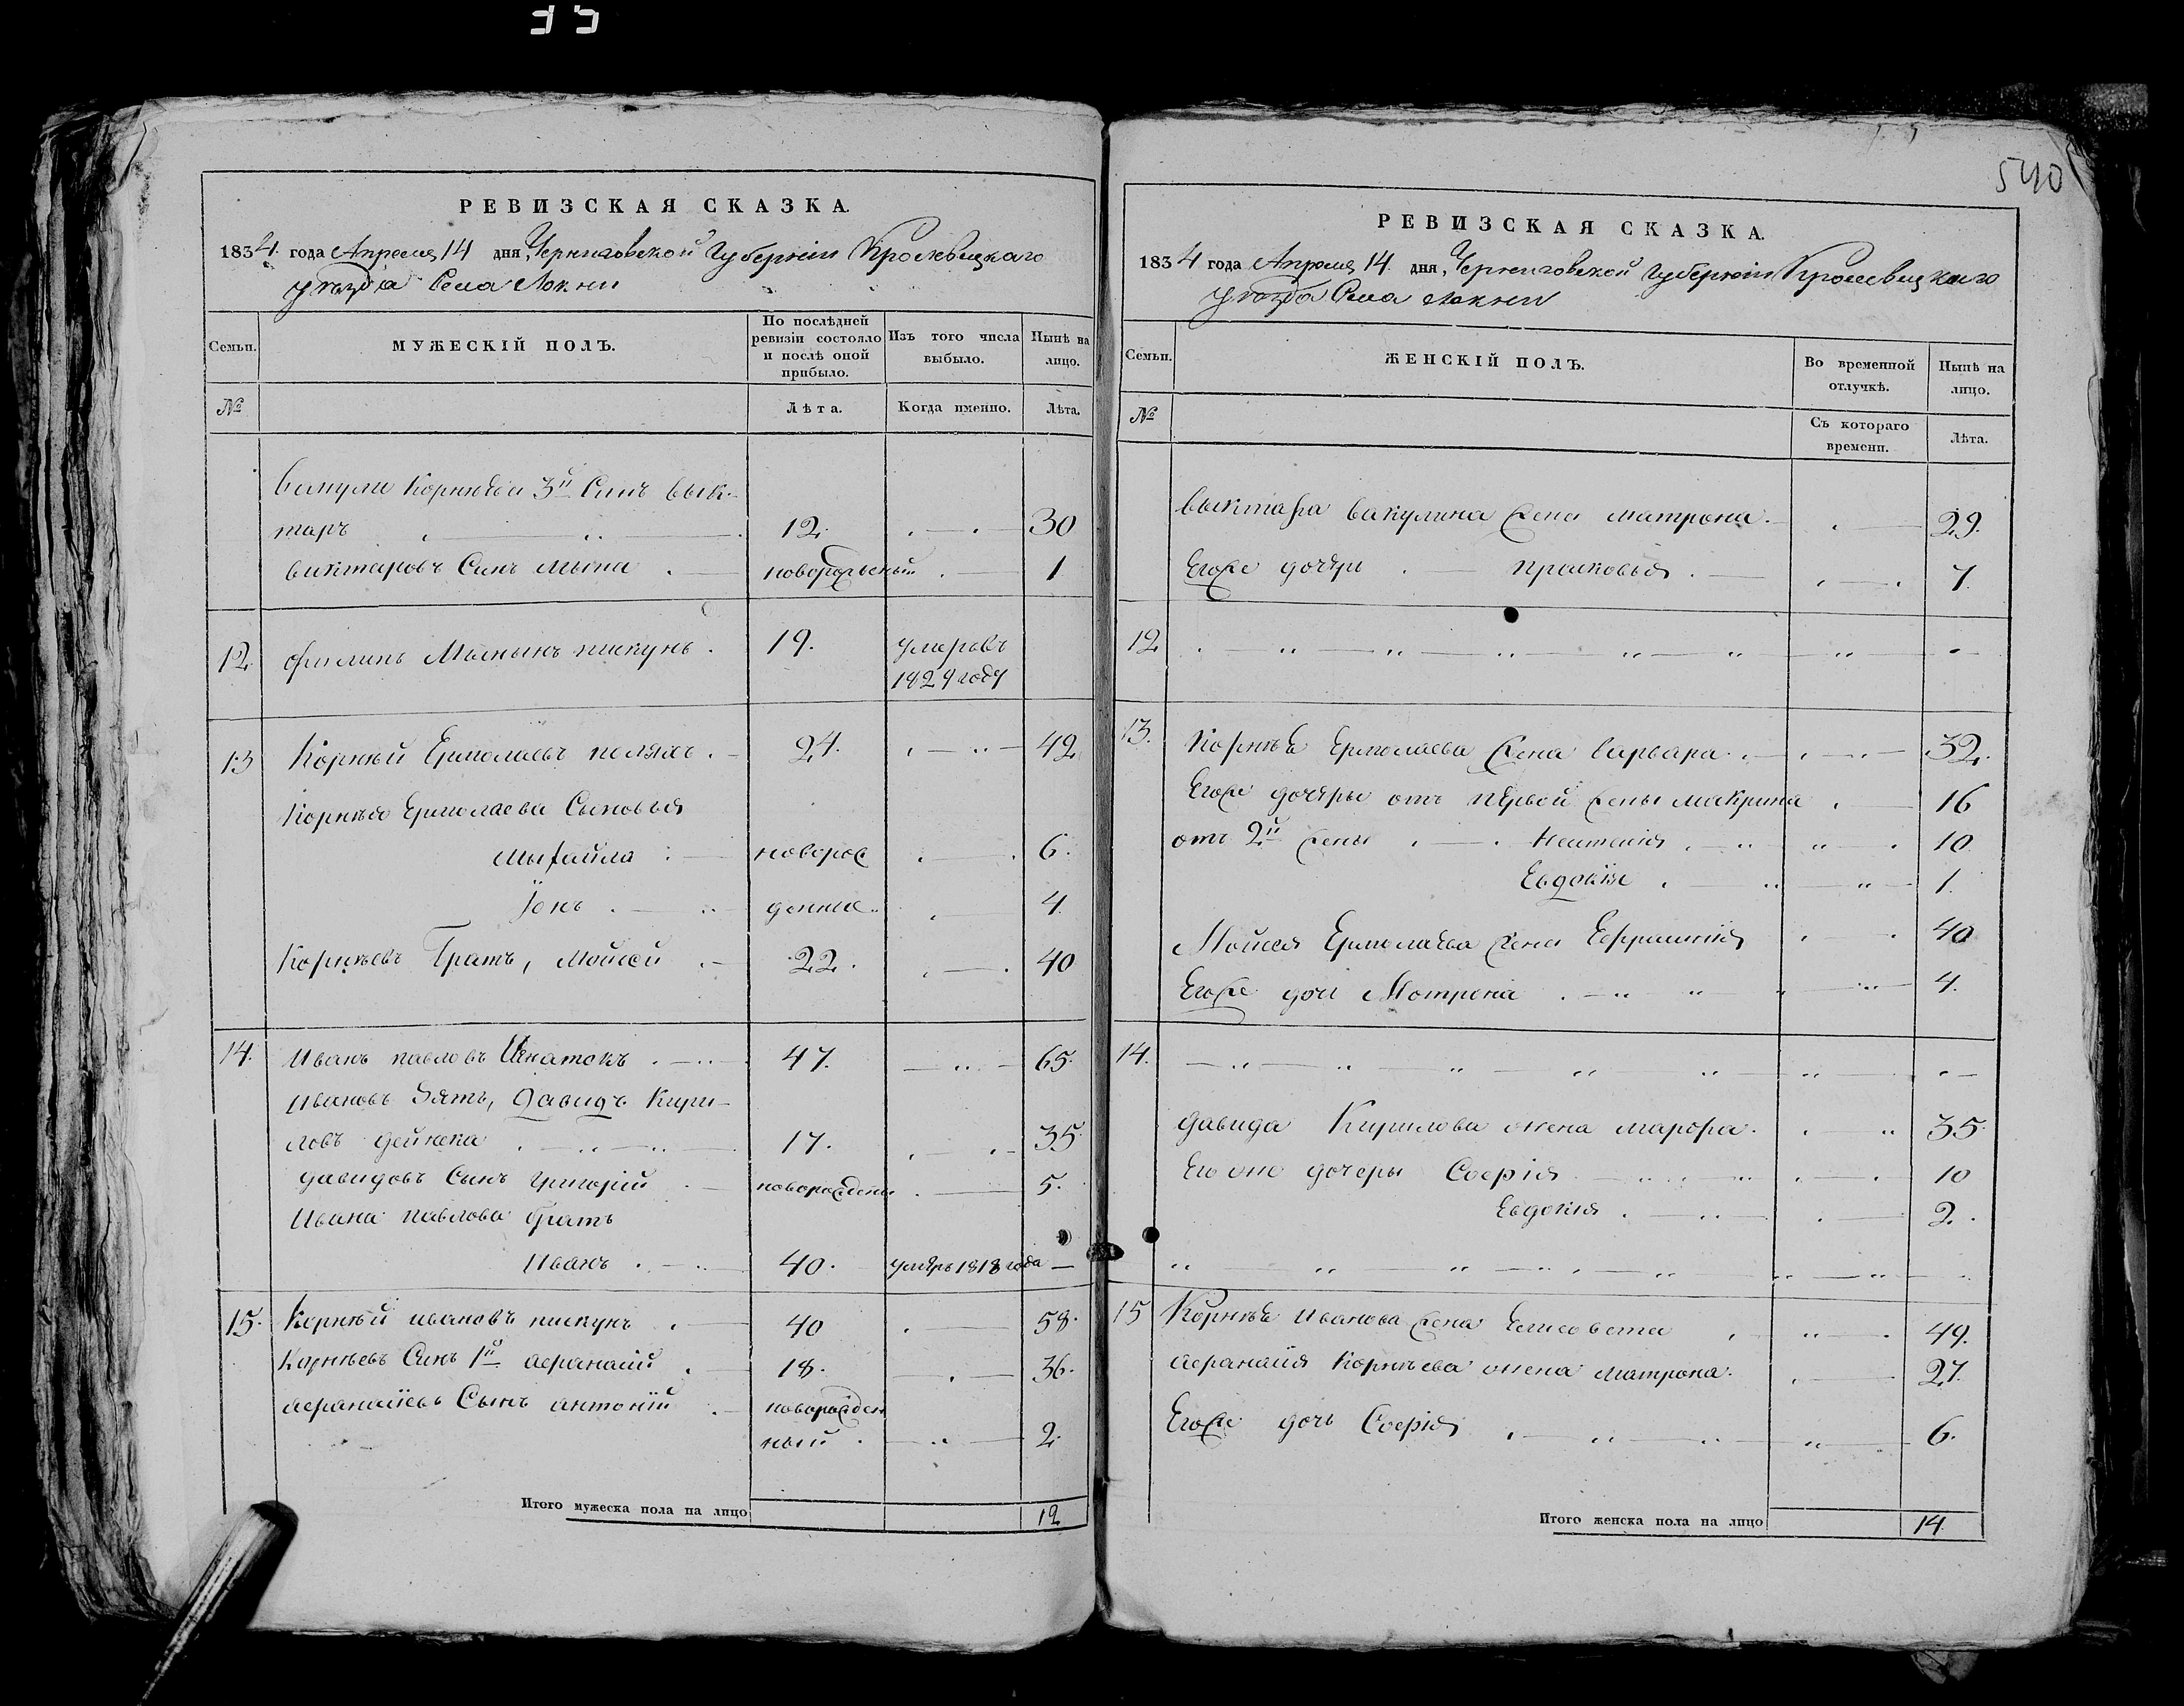 540
РЕВИЗСКАЯ СКАЗКА.
1834 года Апреля 14 дня, Черниговской Губерніи Кролевицкаго
уѣзда Села Локни
Семьи.
МУЖЕСКІЙ ПОЛЪ.
По послѣдней ревизіи состояло и послѣ оной прибыло.
Изъ того числа выбыло.
Нынѣ на лицо.
№
Лѣта.
Когда именно.
Лѣта.
Вакули Корнѣева 3й Синъ вик-
таръ 12. 30
виктаровъ Синъ 1
12. Филипъ пискунъ. 19. умеръ въ
1829 году
13 Корнѣй Ермолаевъ 24. 42
Корнѣя Ермолаева Сыновья
Михайла новорож 6.
Іонъ денные 4.
Корнѣевъ Братъ, Мойсей 22. 40
14. Иванъ павловъ Игнатокъ 47. 65.
Ивановъ Зять, Давидъ Кири-
ловъ дейнека 17. 35.
давидовъ Сынъ григорій новорожденый 5.
Ивана павлова братъ
Иванъ 40. умеръ 1818 года —
15. Корнѣй ивановъ пискунъ 40 58.
Корнѣевъ Синъ 1й афанасій 18. 36.
афанасіевъ Сынъ антоній новорожден
ный 2.
Итого мужеска пола на лицо 12
РЕВИЗСКАЯ СКАЗКА.
1834 года Апреля 14. дня, Черниговской Губерніи Кролевицкаго
уѣзда Села Локни
Семьи.
ЖЕНСКІЙ ПОЛЪ.
Во временной отлучкѣ.
Нынѣ на лицо.
№
Съ котораго времени.
Лѣта.
виктара вакулина жена матрона. 29.
Егоже прасковья 7.
12
13. Корнѣя Ермолаева жена варвара 32.
Егоже дочѣры отъ пѣрвой жены макрина 16
отъ 2й жены 10
Евдокія 1.
Мойсея Ермолаева жена Ефросинія 40
Егоже дочь Мотрона 4.
14.
давида Кирилова жена марфа. 35.
Его же дочеры Софія 10
Евдокія 2.
15 Корнѣя Иванова жена Елисовета 49.
афанасія Корнѣева жена матрона. 27.
Егоже дочь Софія 6.
Итого женска пола на лицо 14.